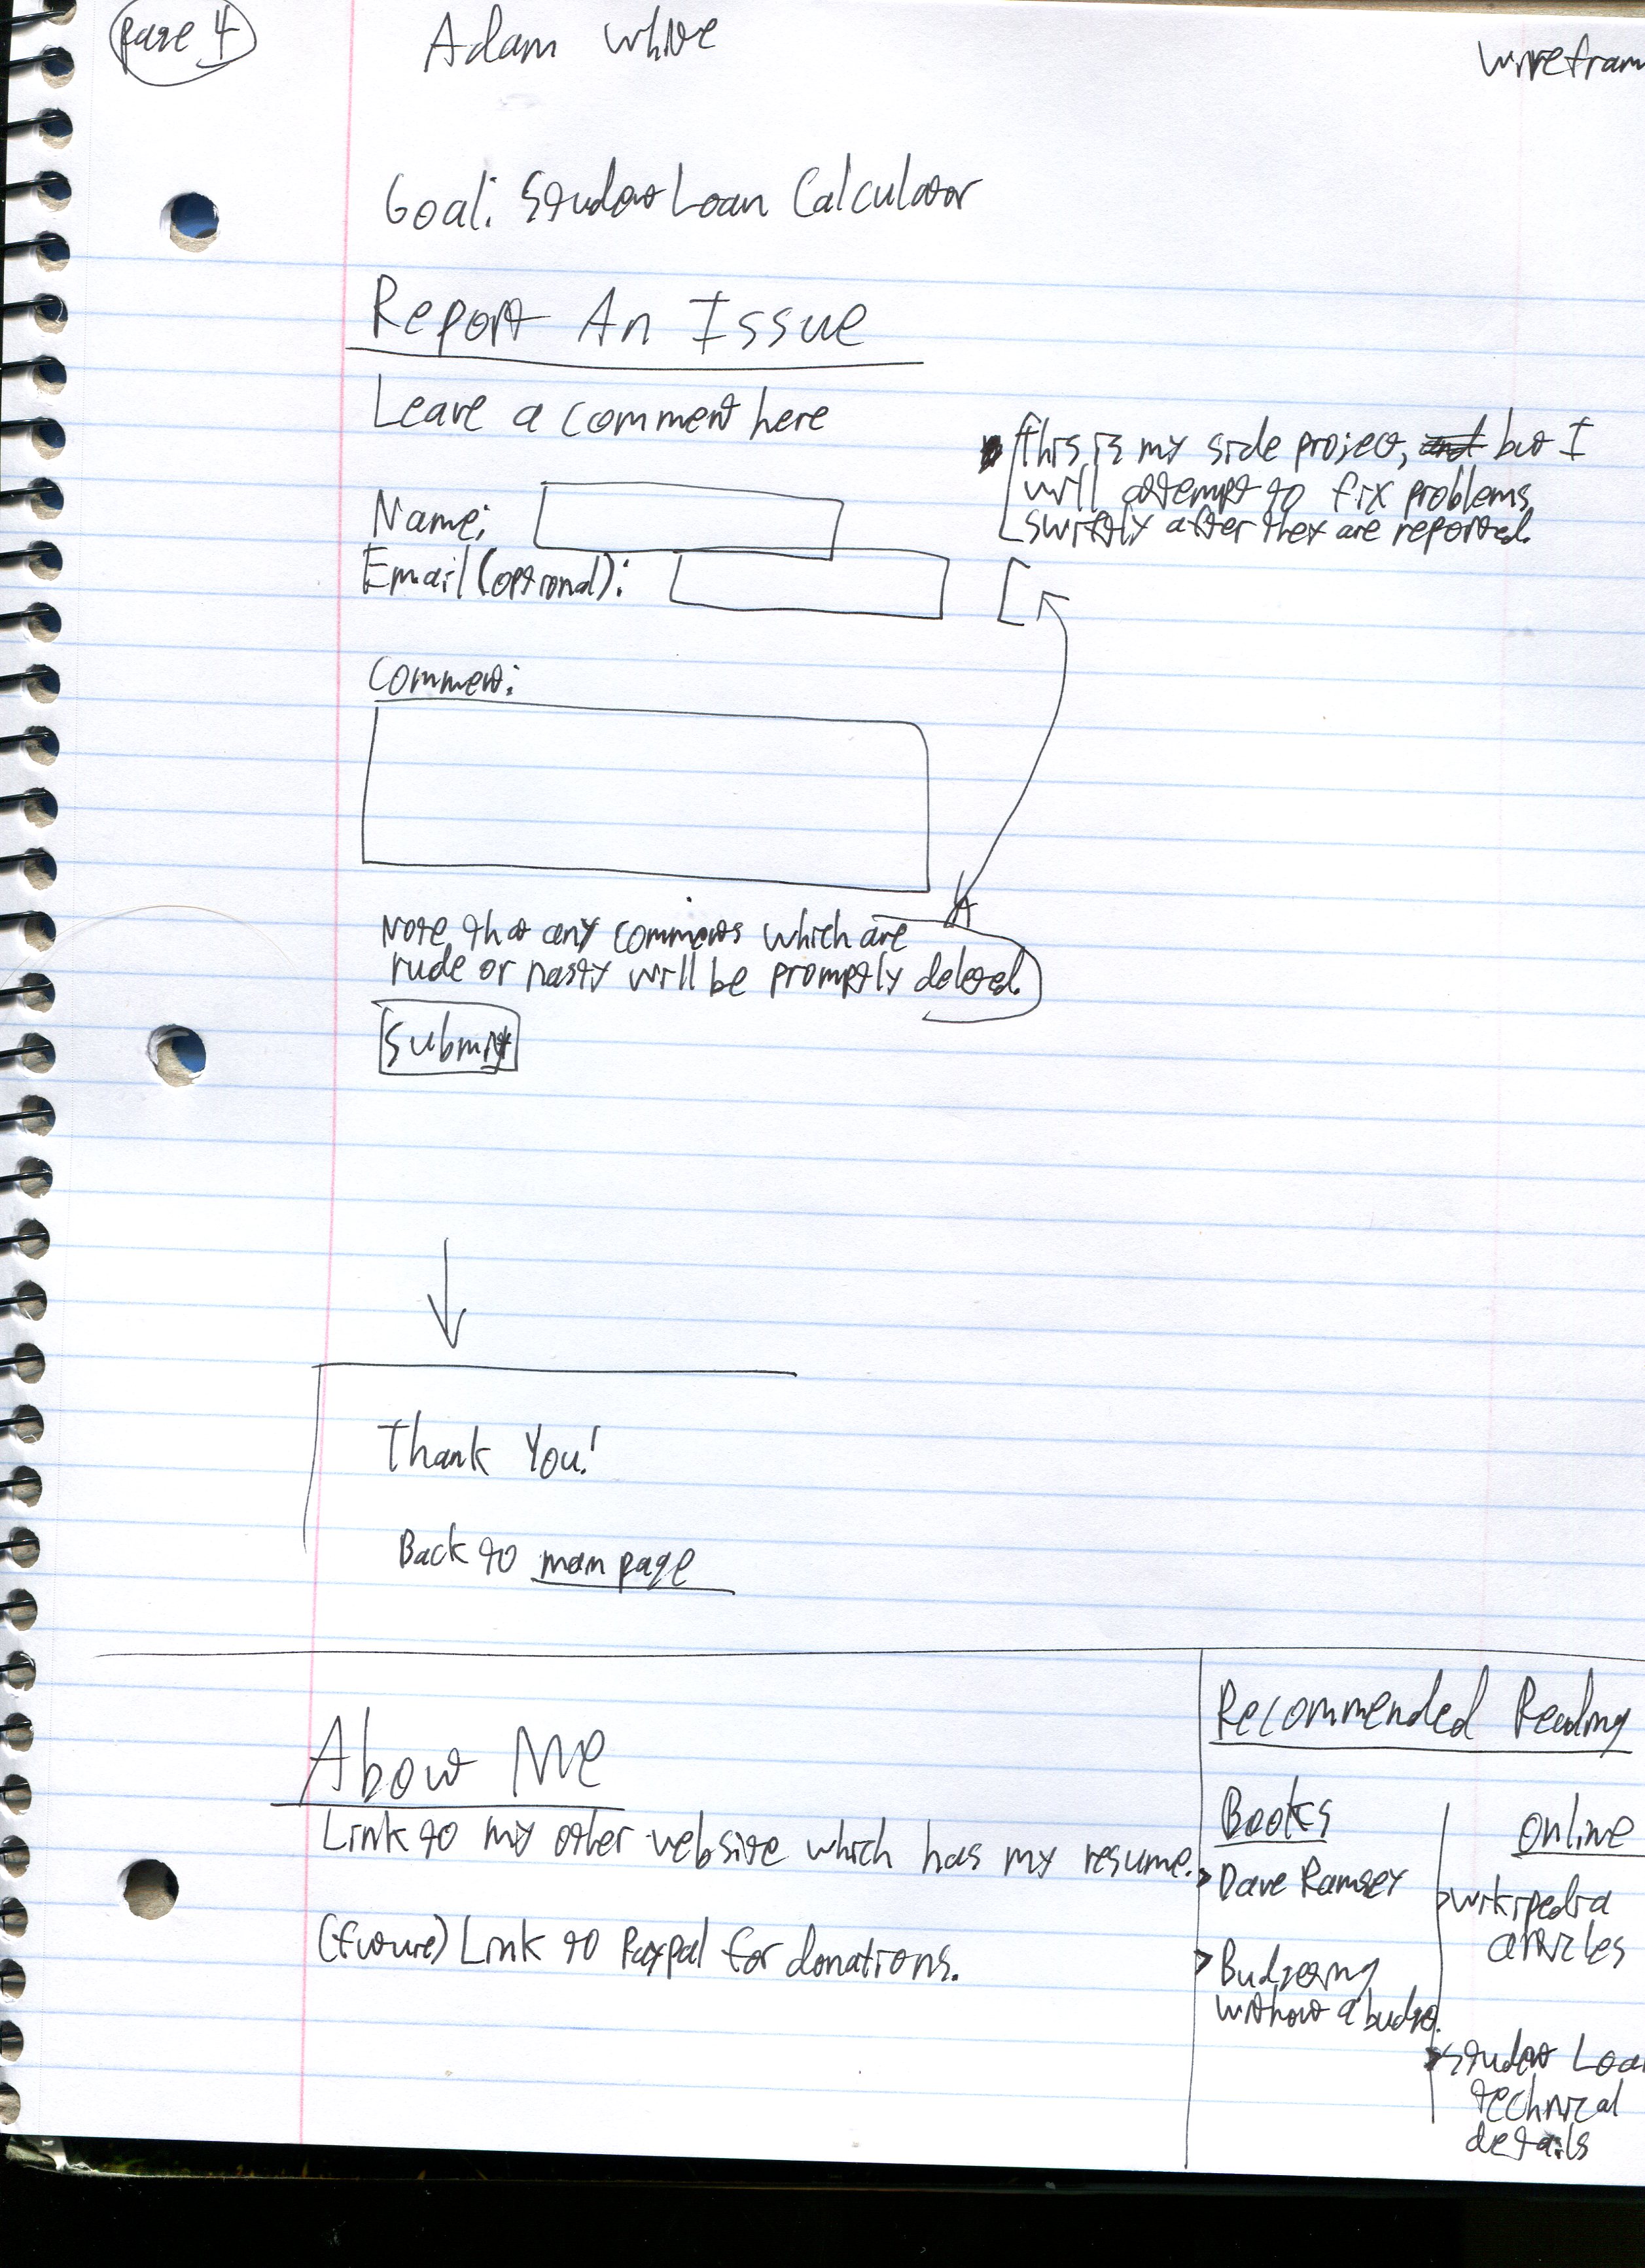 Page 4
Adam White
Wirefram
Goal: Student Loan Calculator
Report An Issue
Leave a comment here
This is my side project, and but I
will attempt to fix problems
swiftly after they are reported.
Name:
Email (optional):
Comment:
Note that any comments which are
rude or nasty will be promptly deleted.
Submit
Thank You!
Back to main page
About Me
Link to my other website which has my resume.
(future) Link to Paypal for donations.
Recommended Reading
Books
Dave Ramsey
Budgeting
without a budget.
Online
Wikipedia
articles
Student Loa
technical
details